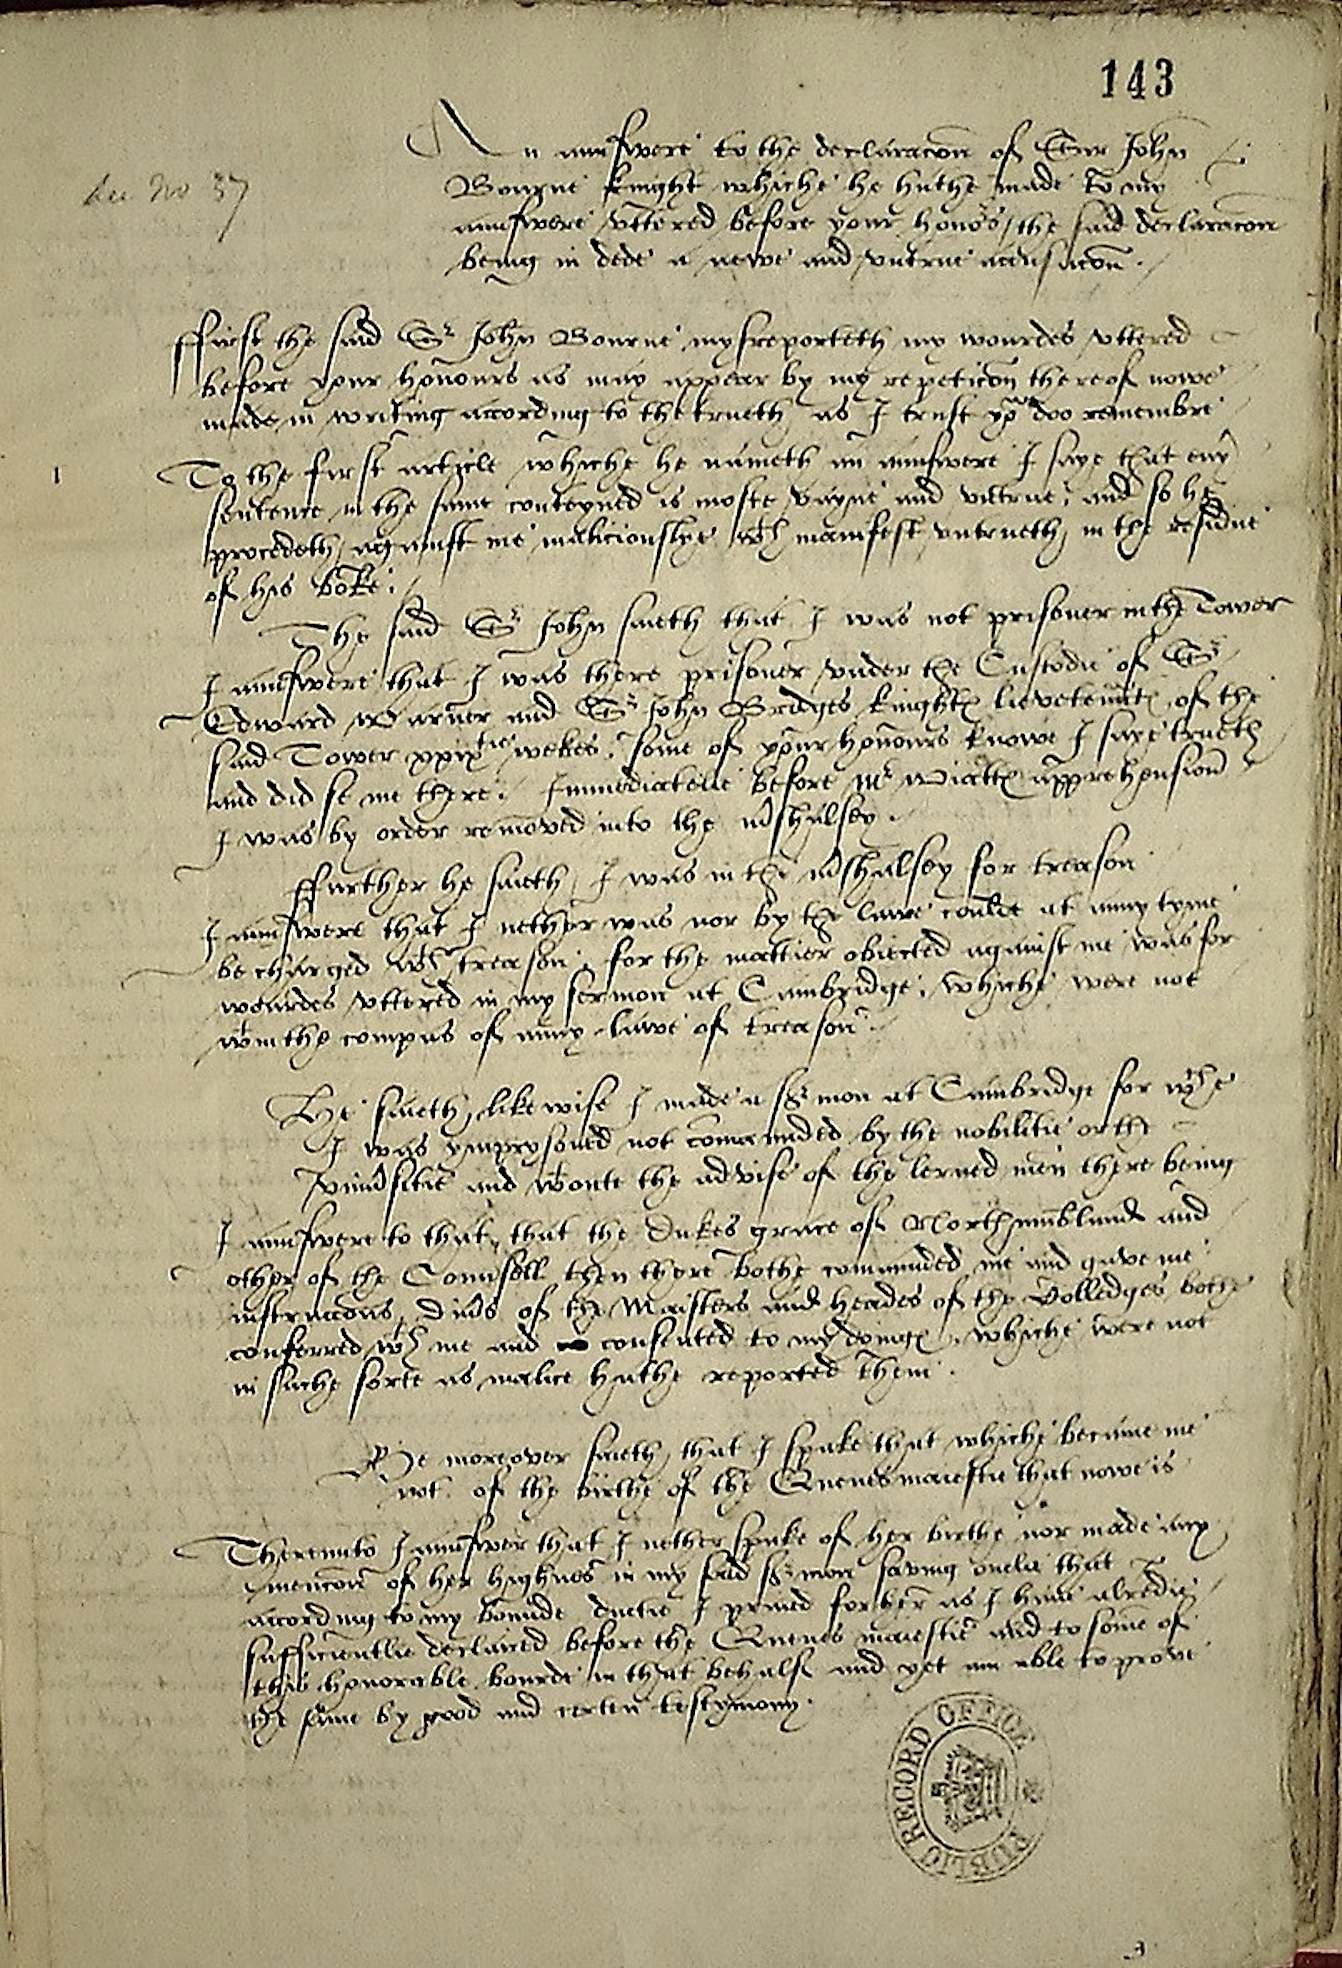 143
See No 37
An aunswere to the declaracon of Sir John
Bourne knight whiche he hathe made to my
aunswere vttered before your honors / the said declaracon
being in dede a newe and vntrue accusacon .
ffirst the said Sr John Bourne mysreporteth my wourdes vttered
before your honours as may appear by my repeticon thereof nowe
made in writing according to the trueth as I trust yor doo remembre
1
To the first article whiche he nameth an aunswere I saye that eny
sentence in the same conteyned is moste vayne and vntrue , and so he
procedeth against me maliciouslye wth manifest vntrueth in the residue
of his boke .
The said Sr John saieth that I was not prisoner in the Tower
I aunswere that I was there prisoner vnder the Custodie of Sr
Edward Warner and Sr John Bridges knightes lievetenntes of the
said Tower xxixtie wekes . some of your honours knowe I saye trueth
and did se me there . Immediatelie before Mr Wiattes apprehension
I was by order removed into the mshalsey .
ffurther he saieth I was in the mshalsey for treason
I aunswere that I nether was nor by the lawe coulde at anny tyme
be charged wth treason . for the mattier obiected against me was for
wourdes vttered in my sermon at Cambridge , whiche were not
wtin the compas of anny lawe of treason .
He saieth likewise I made a sermon at Cambridge for wche
I was ymprysoned not comaunded by the nobilitie or the
vniusitie and wtoute the advise of the lerned men there being
I aunswere to that , that the Dukes grace of Northumblande and
other of the Counsell then there bothe comaunded me and gave me
instruccons , Diuers of the Maisters and heades of the Colledges bothe
conferred wth me and consented to my doinges , whiche were not
in suche sorte as malice hathe reported them .
He moreover saieth that I spake that whiche became me
not of the birthe of the Quenes maiestie that nowe is
Therunto I aunswer that I nether spake of her birthe nor made any
mencon of her highnes in my said sermon saving onelie that
according to my bounde duetie I praied for her as I have alredie
sufficientlie declared before the Quenes maiestie and to some of
this honorable bourde in that behalf and yet am able to prove
the same by good and certen testymony .
PUBLIC RECORD OFFICE